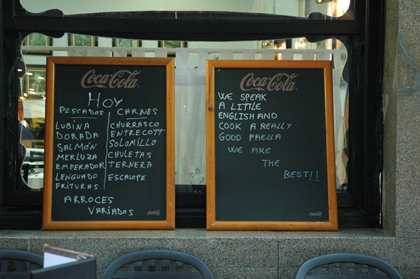 Coca-Cola
Hoy
PESCADOS
LUBINA
DORADA
SALMÓN
MERLUZA
EMPERADOR
LENGUADO
FRITURAS
CARNES
CHURRASCO
ENTRECOTT
SOLOMILLO
CHULETAS
TERNERA
ESCALOPE
ARROCES
VARIADOS
Coca-Cola
Coca-Cola
WE SPEAK
A LITTLE
ENGLISH AND
COOK A REALLY
GOOD PAELLA
WE ARE
THE
BEST!!
Coca-Cola